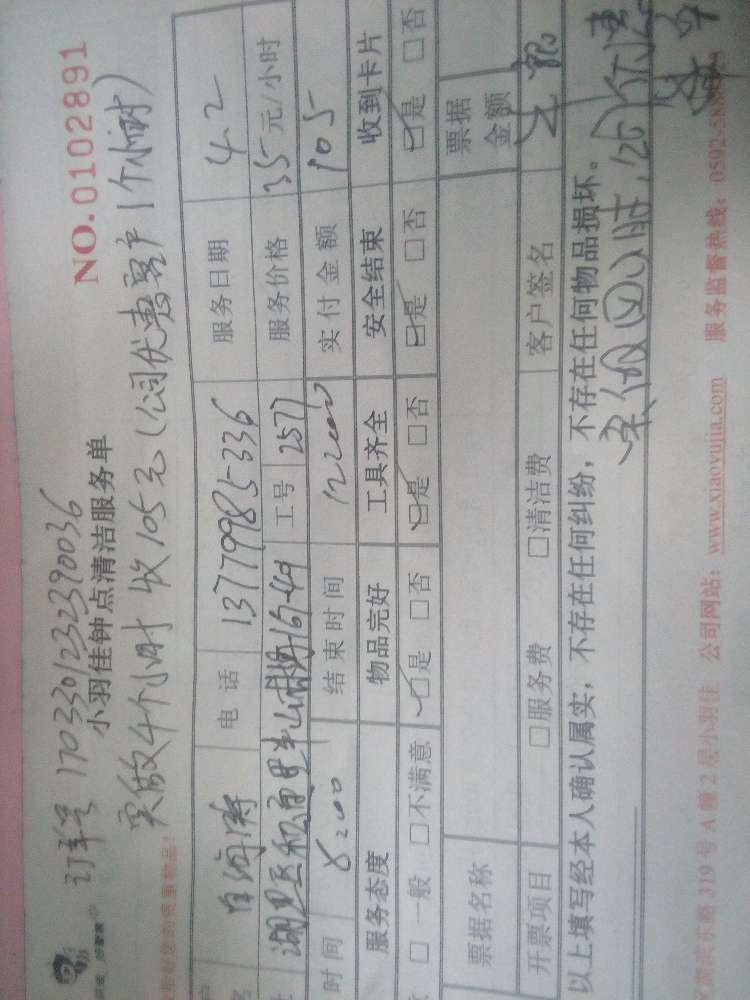 订单号 170330123239 0036
NO.0102891
小羽佳钟点清洁服务单
实做4个小时 收105元(公司优惠客户1个小时)
电话 13779985336 服务日期 4.2
工号 2577 服务价格 35元/小时
时间 8:00 结束时间 12:00 实付金额 105
服务态度 物品完好 工具齐全 安全结束 收到卡片
□一般 □不满意 □是 □否 □是 □否 □是 □否 □是 □否
票据名称 票据金额
开票项目 □服务费 □清洁费 客户签名
以上填写经本人确认属实,不存在任何纠纷,不存在任何物品损坏。
号A幢2层小羽佳 公司网站:www.xiaoyujia.com 服务监督热线:0592-